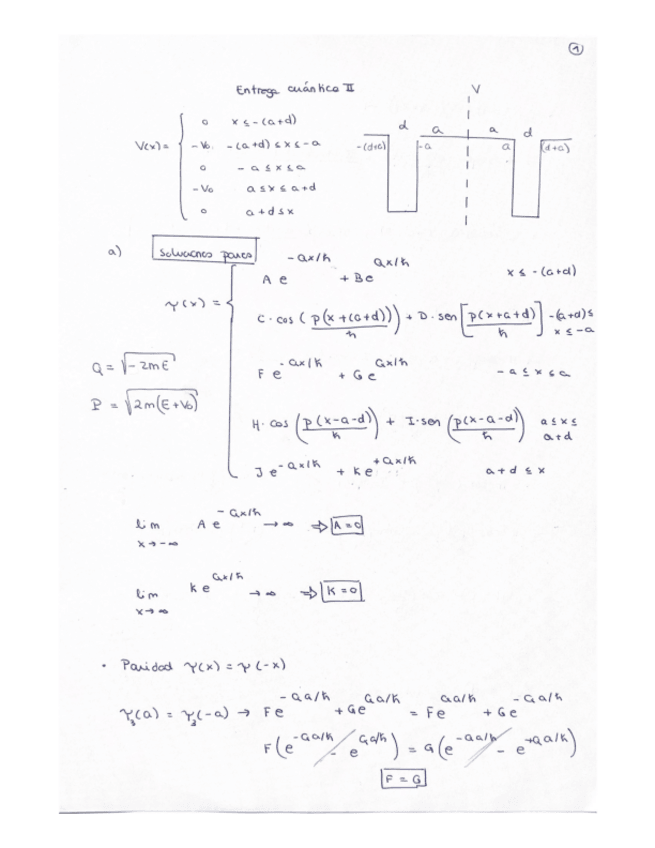 ①
Entrega cuántica II
V
V(x) = { 0   x ≤ -(a+d)
-V₀   -(a+d) ≤ x ≤ -a
0   -a ≤ x ≤ a
-V₀   a ≤ x ≤ a+d
0   a+d ≤ x
d a a d
-(d+a) -a a (d+a)
a) Soluciones pares
ψ(x) = { A e^{-Qx/ħ} + B e^{Qx/ħ}   x ≤ -(a+d)
C·cos(p(x+(a+d))/ħ) + D·sen[p(x+a+d)/ħ]   -(a+d) ≤ x ≤ -a
F e^{-Qx/ħ} + G e^{Qx/ħ}   -a ≤ x ≤ a
H·cos(p(x-a-d)/ħ) + I·sen(p(x-a-d)/ħ)   a ≤ x ≤ a+d
J e^{-Qx/ħ} + K e^{+Qx/ħ}   a+d ≤ x
Q = √(-2mE)
P = √(2m(E+V₀))
lim x→-∞ A e^{-Qx/ħ} → ∞ ⇒ A = 0
lim x→∞ K e^{Qx/ħ} → ∞ ⇒ K = 0
· Paridad ψ(x) = ψ(-x)
ψ₃(a) = ψ₃(-a) → F e^{-Qa/ħ} + G e^{Qa/ħ} = F e^{Qa/ħ} + G e^{-Qa/ħ}
F(e^{-Qa/ħ} - e^{Qa/ħ}) = G(e^{-Qa/ħ} - e^{+Qa/ħ})
F = G